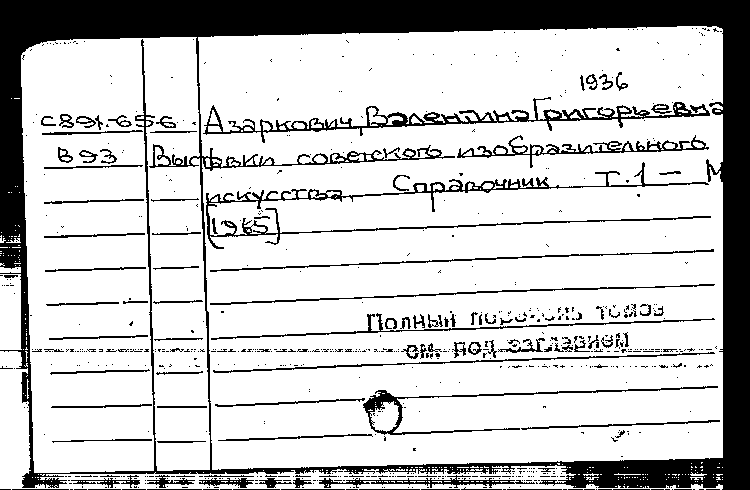 1936
с891.-656 Азаркович, Валентина Григорьевна
В93 Выставки советского изобразительного
искусства. Справочник. Т.1 — М
[1965]
Полный перечень томов
см. под заглавием